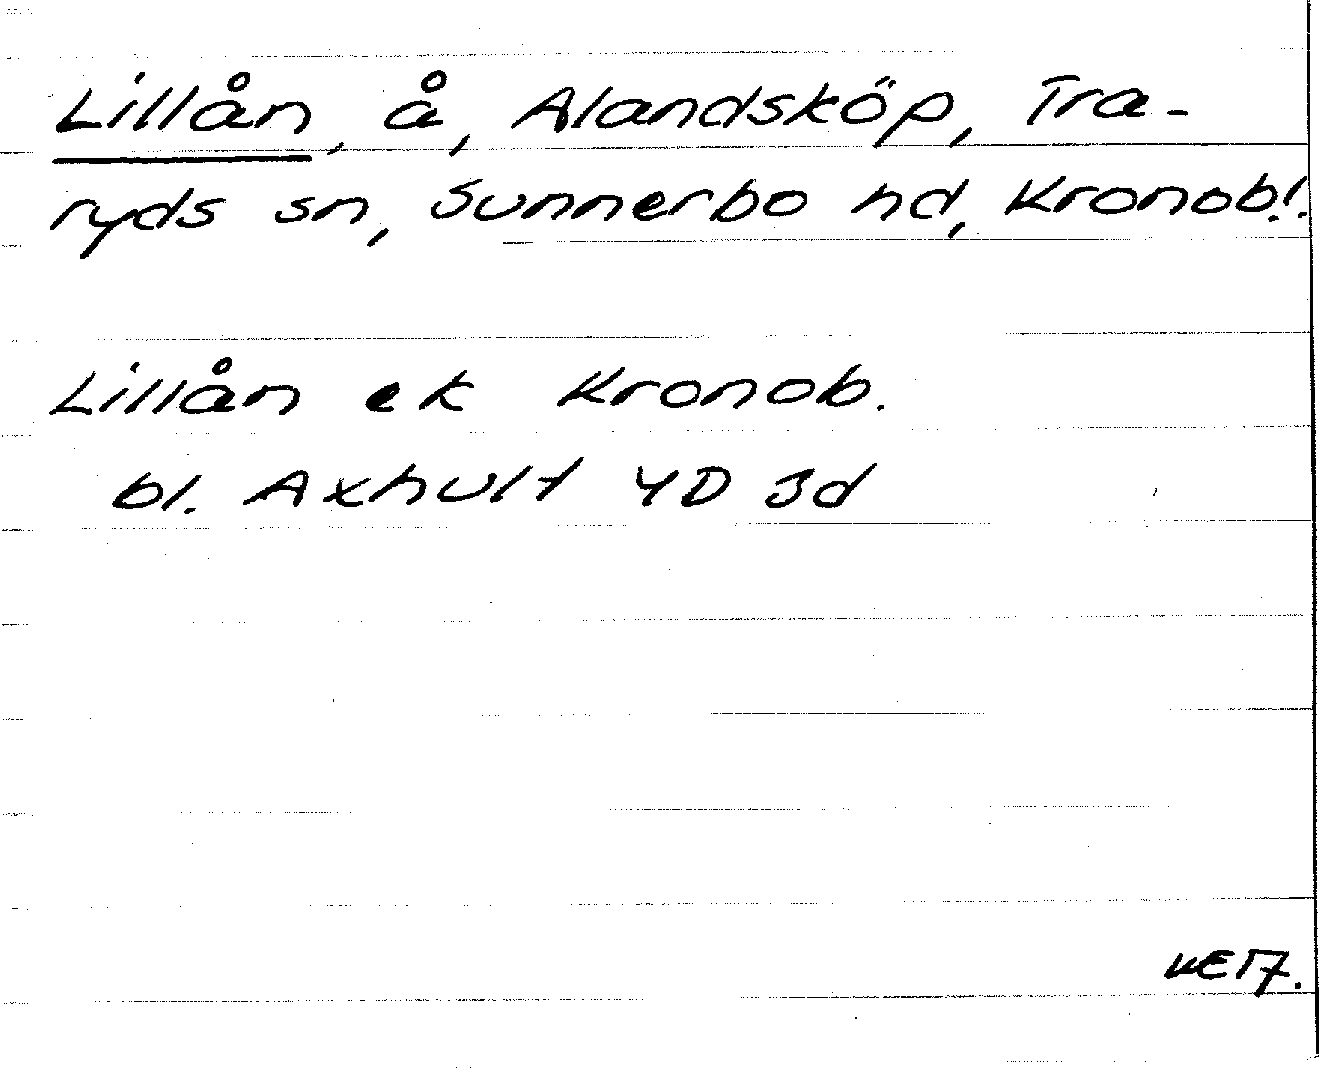 Lillån, å, Alandsköp, Tra-
ryds sn, Sunnerbo hd, Kronob. l.
Lillån ek Kronob.
bl. Axhult 4D 3d